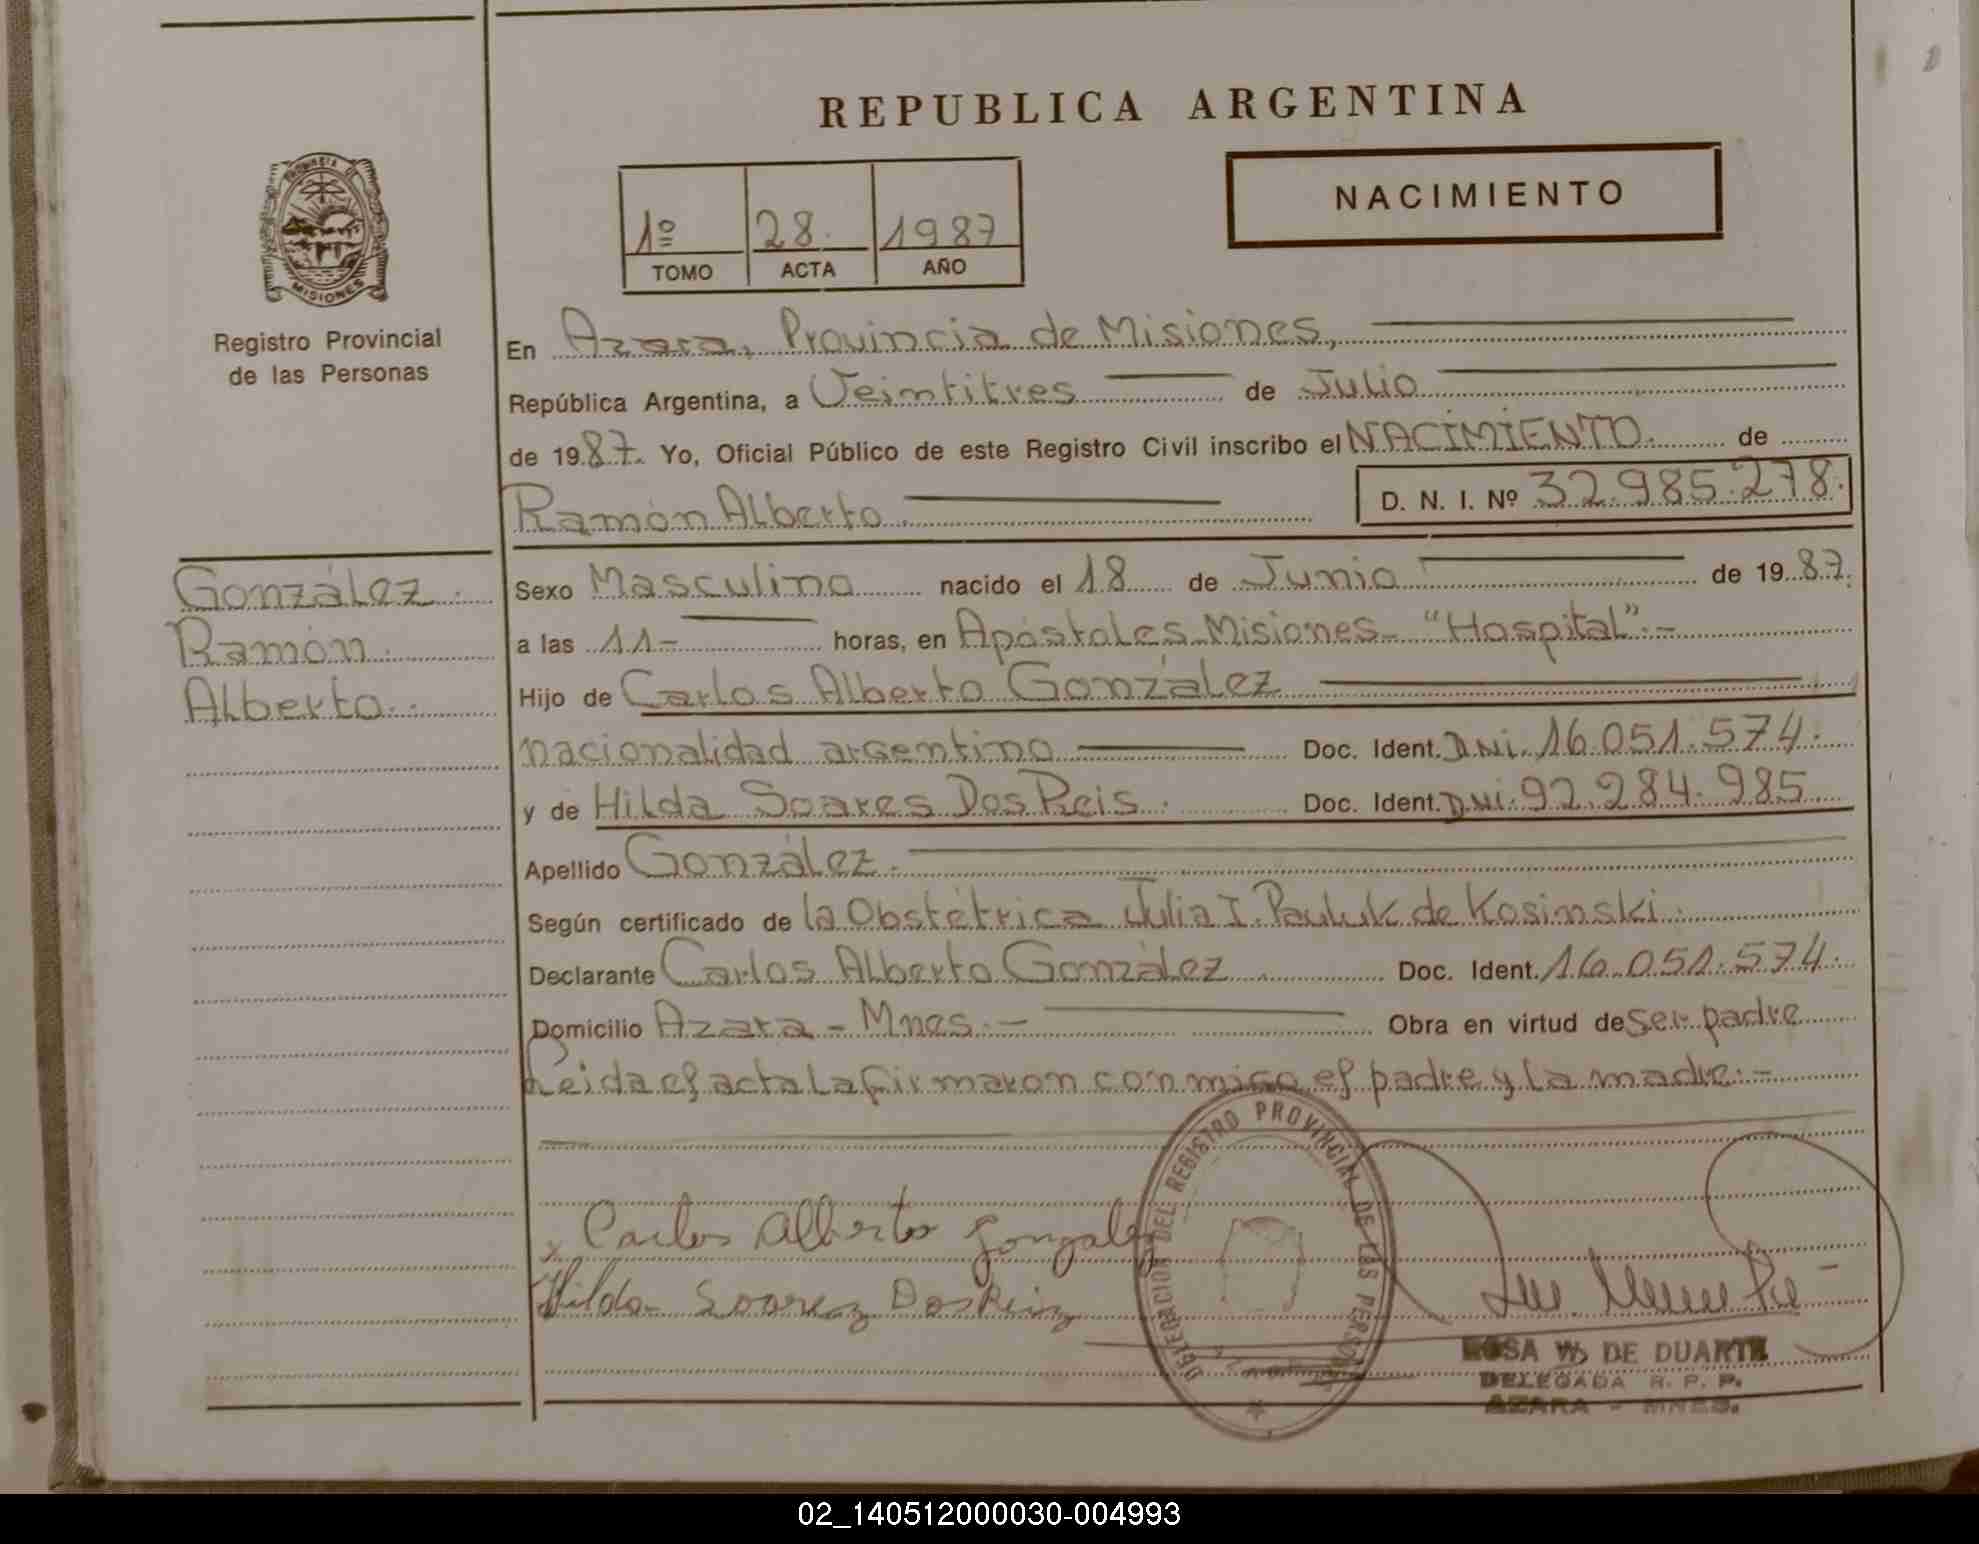 REPUBLICA ARGENTINA
PROVINCIA DE
MISIONES
Registro Provincial
de las Personas
1º 28. 1987
TOMO ACTA AÑO
NACIMIENTO
En Azara, Provincia de Misiones,
República Argentina, a Veintitres de Julio
de 1987. Yo, Oficial Público de este Registro Civil inscribo el NACIMIENTO. de
Ramón Alberto. D. N. I. Nº 32.985.278.
González.
Ramón.
Alberto.
Sexo Masculino nacido el 18 de Junio de 1987.
a las 11- horas, en Apóstoles Misiones- "Hospital".-
Hijo de Carlos Alberto González
nacionalidad argentino Doc. Ident. DNi. 16.051.574.
y de Hilda Soares Dos Reis. Doc. Ident. DNi. 92.284.985
Apellido González.
Según certificado de la Obstétrica Julia I. Pauluk de Kosinski.
Declarante Carlos Alberto González Doc. Ident. 16.051.574.
Domicilio Azara - Mnes.- Obra en virtud de ser padre
Leida el acta la firmaron conmigo el padre y la madre.-
x Carlos Alberto Gonzalez
Hilda Soarez Dos Reis
DELEGACION DEL REGISTRO PROVINCIAL DE LAS PERSONAS
ROSA W. DE DUARTE
DELEGADA R. P. P.
AZARA - MNES.
02_140512000030-004993